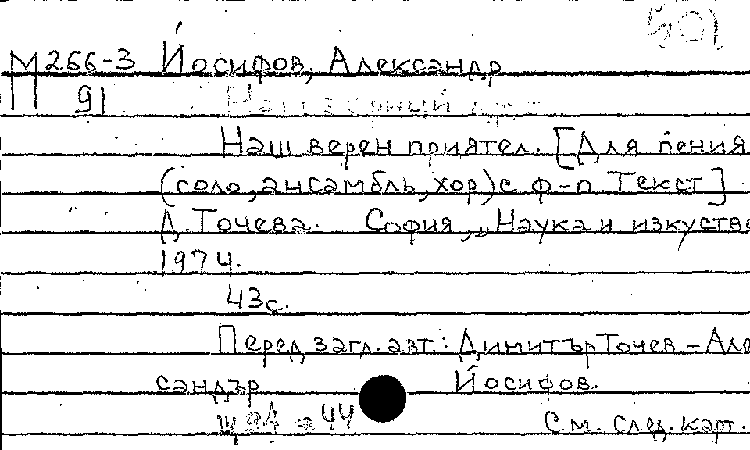 501
М 266-3 Йосифов, Александр
91
Наш верен приятел. [Для пения
(соло, ансамбль, хор) с ф-п. Текст]
Д. Точева. София, „Наука и изкуство
1974.
43с.
Перед загл. авт.: Димитър Точев – Але
сандър Йосифов.
44
См. след. карт.